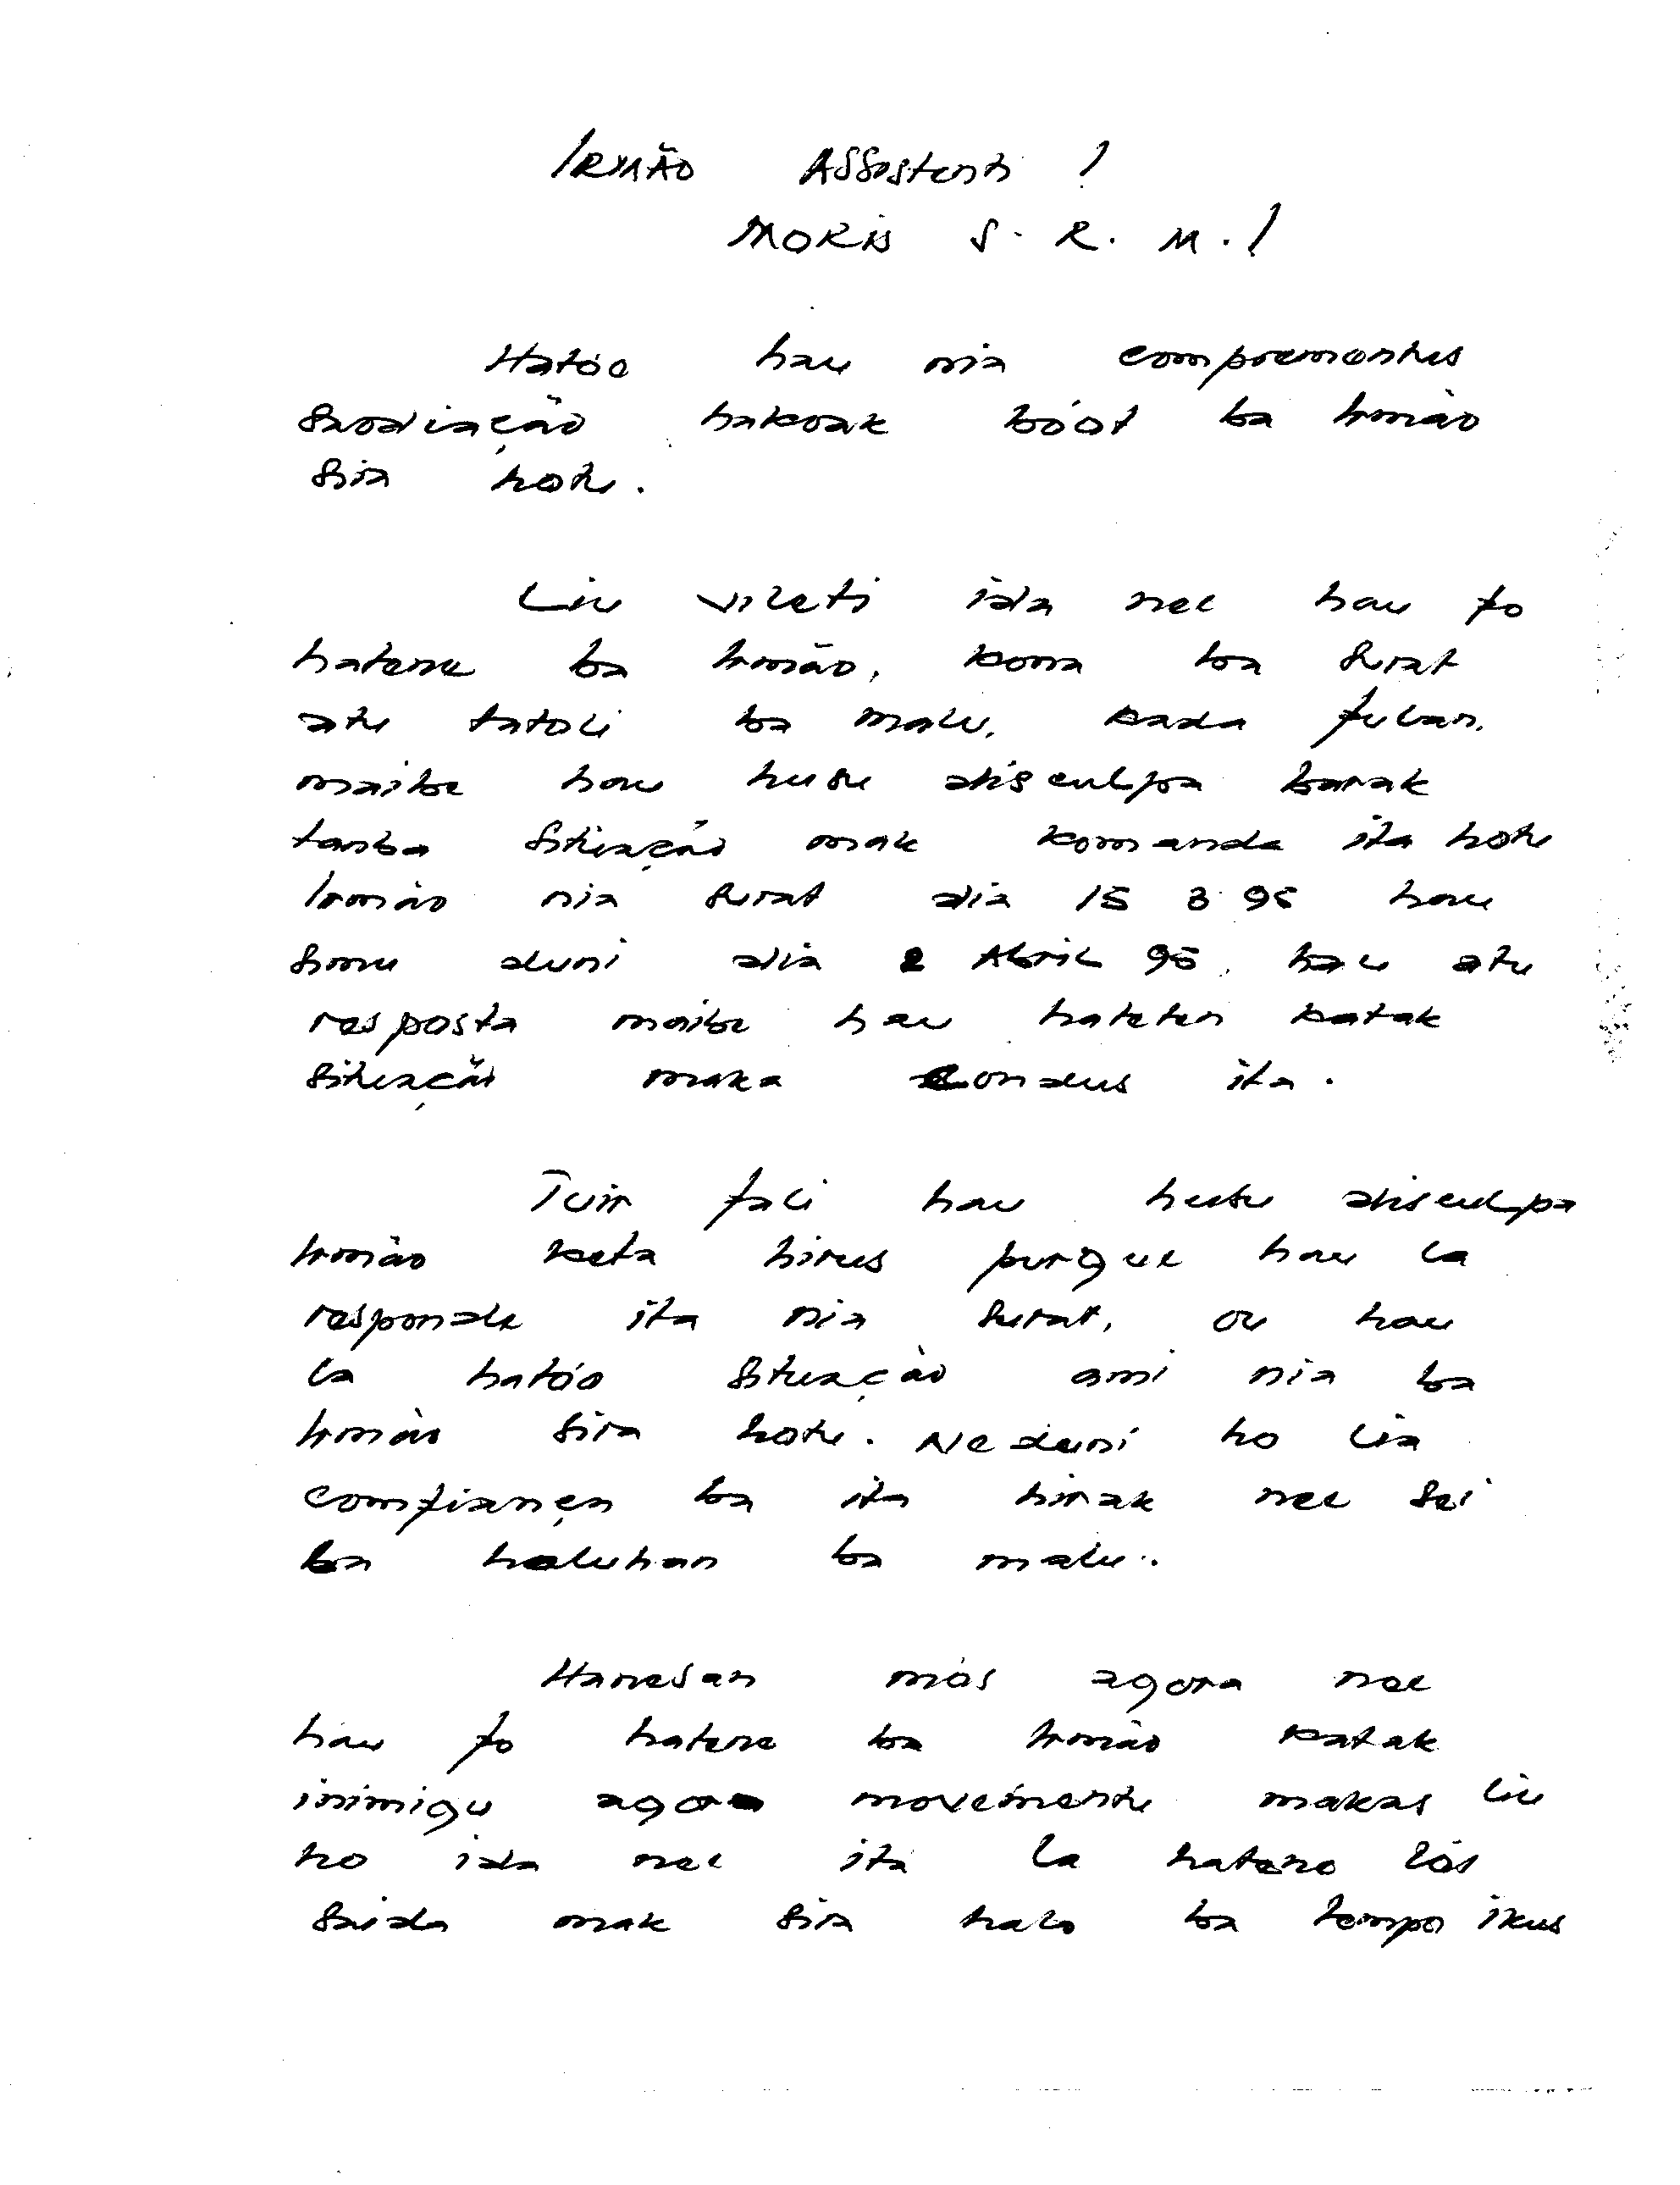 IRMÃO ASSistenti !
MORIS S. R. M. !
Hatóo hau nia compremontus
Saodiação hakoak bóot ba Irmão
Sira hotu.
Liu vileti ida nee hau fo
hatene ba Irmão, kona ba Surat
atu tatoli ba malu, kada fulan.
maibe hau husu disculpa barak
tanba Situação mak komanda ita hotu
Irmão nia Surat dia 15 3 95 hau
Simu duni dia 2 Abril 95, hau atu
resposta maibe hau hateten katak
Situação maka Condus ita.
Tuir fali hau husu disculpa
Irmão keta hirus purque hau la
responde ita nia Surat, ou hau
la hatóo Situação ami nia ba
Irmão Sira hotu. Neduni ho lia
comfiança ba ita hirak nee Sei
la haluhan ba malu.
Hanesan mós agora nee
hau fo hatene ba Irmão katak
inimigu agora movemento makas liu
ho ida nee ita la hatene lós
Saida mak Sira halo ba tempo ikus